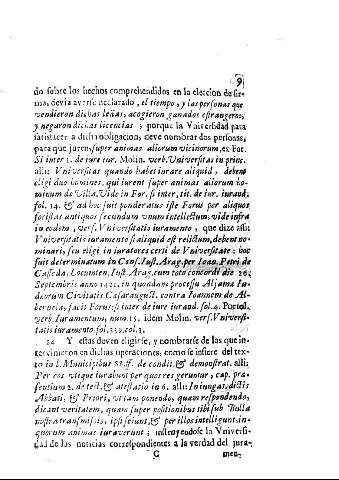 9
do sobre los hechos comprehendidos en la eleccion de fir-
ma, devia averse declarado, el tiempo, y las personas que
vendieron dichas leñas, acogieron ganados estrangeros,
y negaron dichas licencias; porque la Vniversidad para
satisfacer a dicha obligacion, deve nombrar dos personas,
para que juren super animas aliorum vicinorum, ex For.
Si inter 1. de iure iur. Molin. verb. Vniversitas in princ.
alli: Vniversitas quando habet iurare aliquid, debent
eligi duo homines, qui iurent super animas aliorum ho-
minum de Villa. Vide in For. si inter, tit. de iur. iurand.
fol. 14. & ad hoc fuit ponderatus iste Forus per aliquos
foristas antiquos secundum vnum intellectum; vide infra
in eodem, vers. Vniversitatis iuramento, que dize assi:
Vniversitatis iuramento si aliquid est relictum, debent no-
minari, seu eligi in iuratores certi de Vniversitate: hoc
fuit determinatum in Cons. Iust. Arag. per Ioan. Petri de
Casseda, Locumten. Iust. Arag. cum toto concordi die 204
Septembris anno 1421. in quondam processu Aljama Iu-
dæorum Civitatis Cæsaraugust. contra Ioannem de Al-
bernela, facit Forus: si inter de iure iurand. fol. 4. Portol.
verb. Iuramentum, num. 15. idem Molin. verf. Vniversi-
tatis iuramento. fol. 339. col. 3.
24 Y estas deven elegirse, y nombrarse de las que in-
tervinieron en dichas operaciones, como se infiere del tex-
to in l. Municipibus 22. ff. de condit. & demonstrat. alli:
Per eos itaque iurabunt per quos res geruntur, cap. præ-
sentium 2. de test. & atestatio in 6. alli: Iniungat, dictis
Abbati, & Priori, vt tam ponendo, quam respondendo,
dicant veritatem, quam super positionibus tibi sub Bulla
nostra transmissis, ipsi sciunt, & per illos intelligunt, in
quorum animas iuraverunt; instruyendose la Vniversi-
dad de las noticias correspondientes a la verdad del jura-
C men-